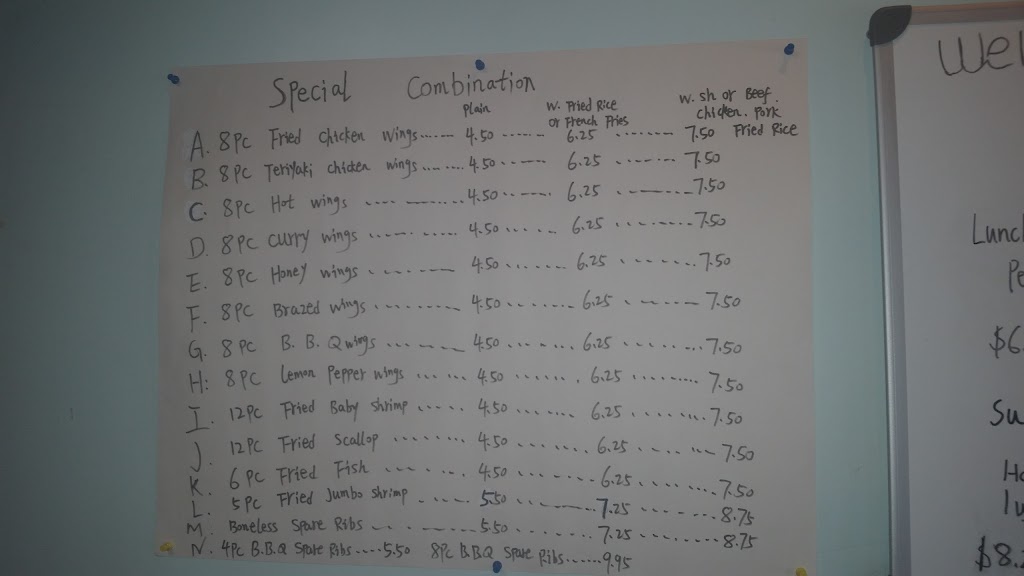 Special Combination
Plain
w. Fried Rice or French Fries
w. sh or Beef. chicken. Pork Fried Rice
A. 8PC Fried chicken wings...... 4.50 ------ 6.25 -------- 7.50
B. 8PC Teriyaki chicken wings........ 4.50 ------ 6.25 ------- 7.50
C. 8PC Hot wings ............ 4.50 ------ 6.25 -------- 7.50
D. 8PC Curry wings ............ 4.50 ...... 6.25 -------- 7.50
E. 8PC Honey wings .......... 4.50 ....... 6.25 ........ 7.50
F. 8PC Brazed wings .......... 4.50 ....... 6.25 ........ 7.50
G. 8PC B. B. Q wings .......... 4.50 ........ 6.25 ........ 7.50
H: 8PC Lemon Pepper wings ...... 4.50 ....... 6.25 ......... 7.50
I. 12PC Fried Baby shrimp ..... 4.50 ....... 6.25 ........ 7.50
J. 12PC Fried Scallop ........ 4.50 ........ 6.25 ........ 7.50
K. 6PC Fried Fish ........ 4.50 ........ 6.25 ........ 7.50
L. 5PC Fried Jumbo shrimp ...... 5.50 ........ 7.25 ........ 8.75
M. Boneless Spare Ribs .......... 5.50 ........ 7.25 ........ 8.75
N. 4PC B.B.Q Spare Ribs....5.50 8PC B.B.Q Spare Ribs......9.95
Wel
Lunch
Pe
$6.
Su
Ho
lu
$8.